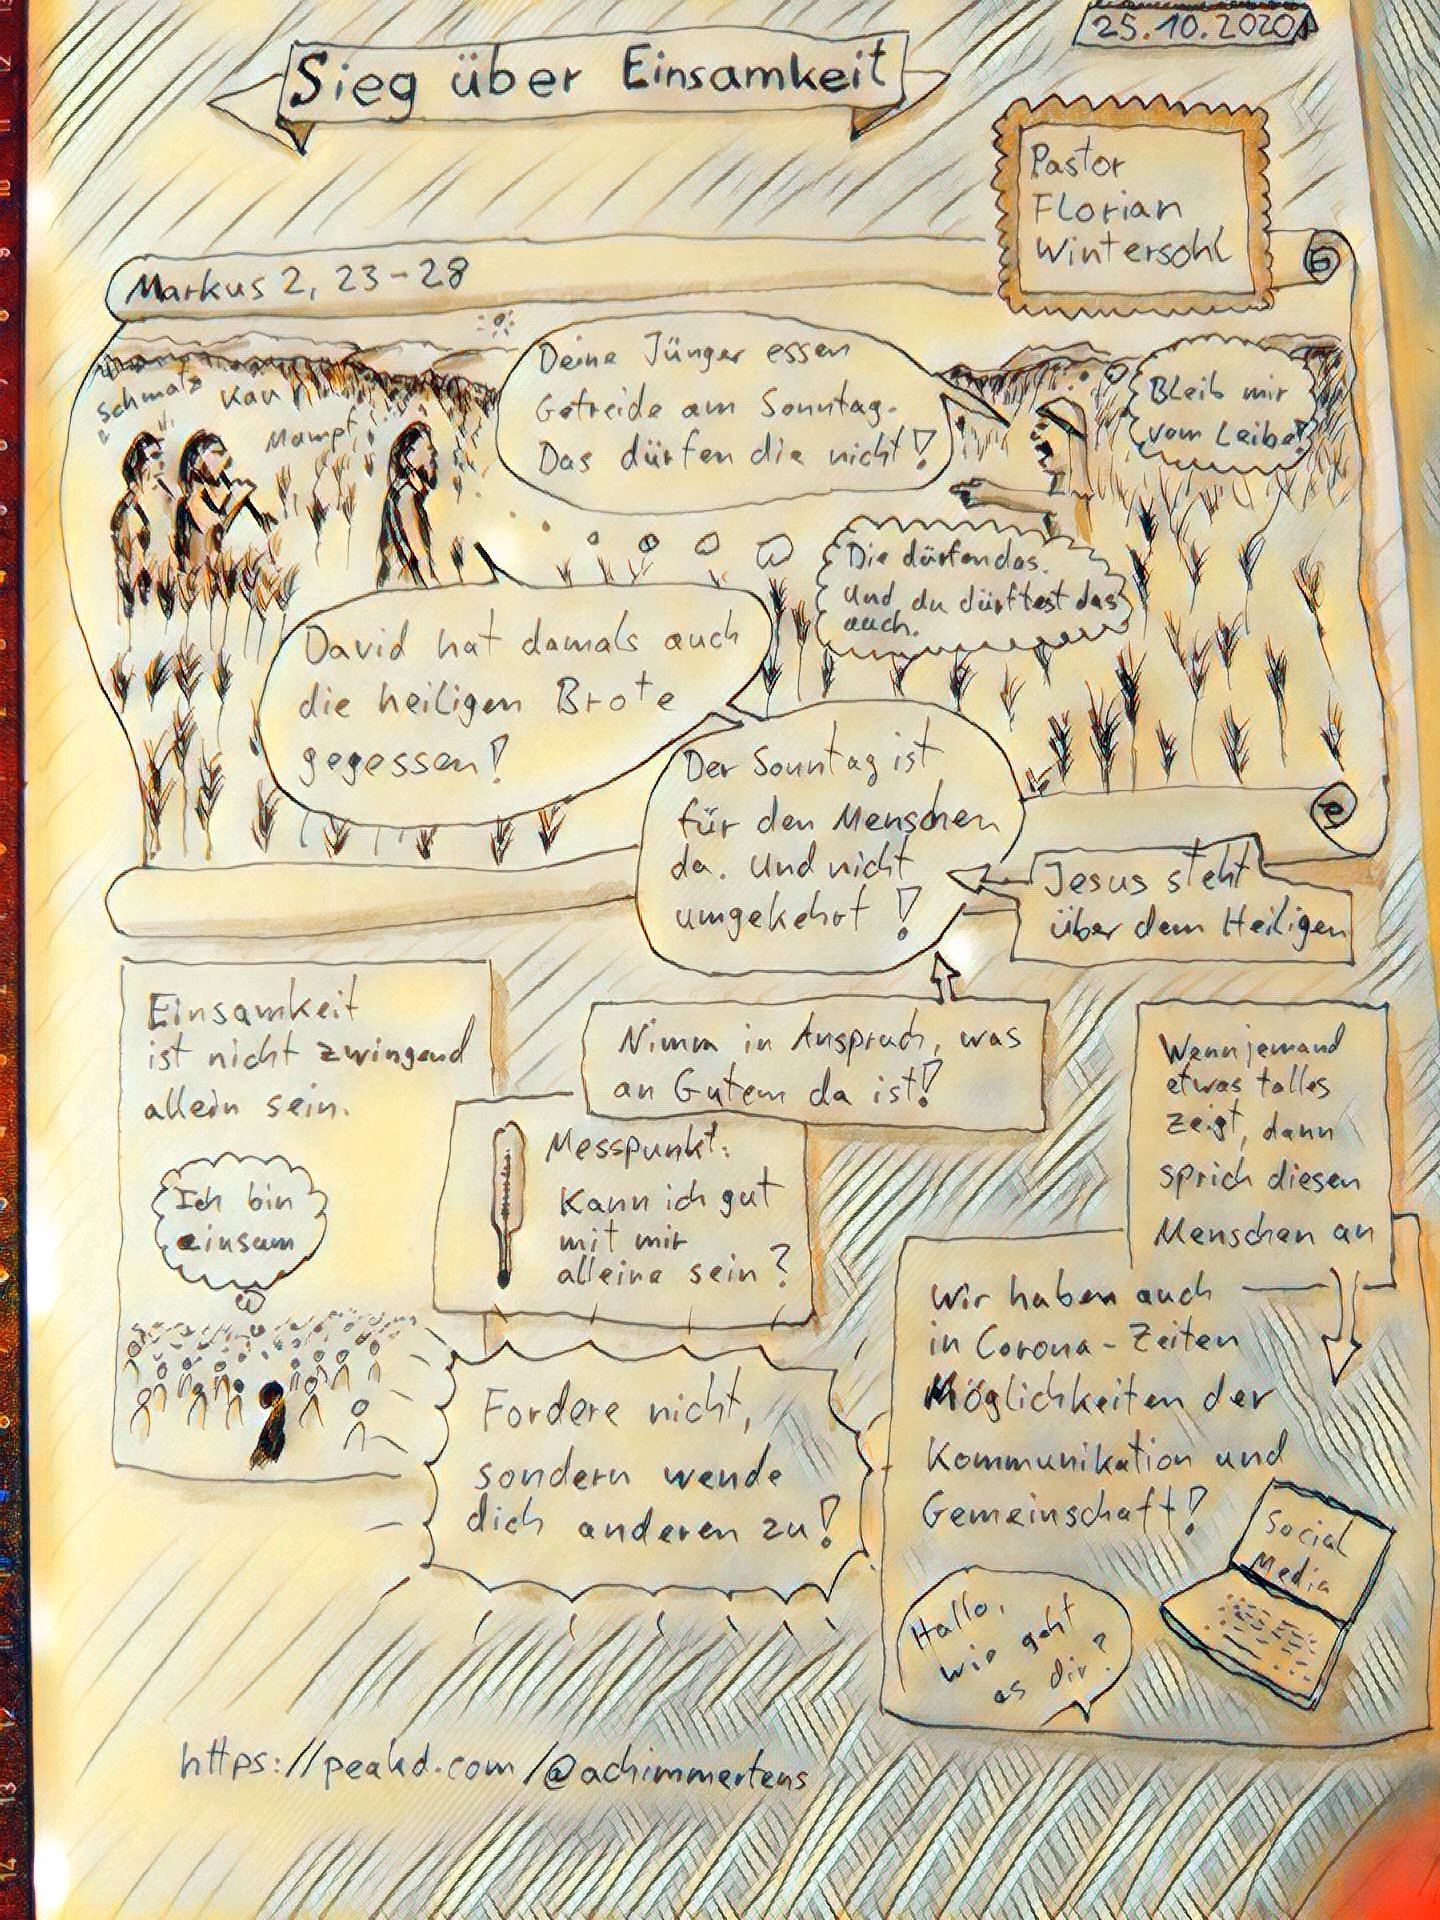 25.10.2020
Sieg über Einsamkeit
Pastor
Florian
Wintersohl
Markus 2, 23-28
schmatz
Kau
Mampf
Deine Jünger essen
Getreide am Sonntag.
Das dürfen die nicht!
Bleib mir
vom Leibe!
Die dürfen das.
Und du dürftest das
auch.
David hat damals auch
die heiligen Brote
gegessen!
Der Sonntag ist
für den Menschen
da. Und nicht
umgekehrt!
Jesus steht
über dem Heiligen
Einsamkeit
ist nicht zwingend
allein sein.
Ich bin
einsam
Nimm in Anspruch, was
an Gutem da ist!
Messpunkt:
Kann ich gut
mit mir
alleine sein?
Wenn jemand
etwas tolles
zeigt, dann
sprich diesen
Menschen an
Fordere nicht,
sondern wende
dich anderen zu!
Wir haben auch
in Corona-Zeiten
Möglichkeiten der
Kommunikation und
Gemeinschaft!
Social
Media
Hallo,
wie geht
es dir?
https://peakd.com/@achimmertens